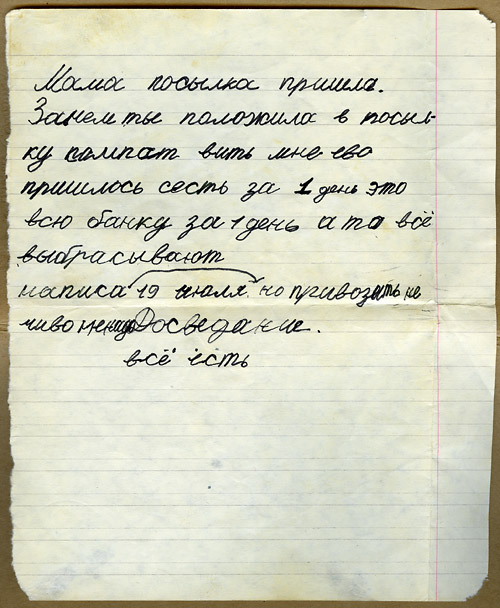 Мама посылка пришла.
Зачем ты положила в посыл-
ку кампат вить мне ево
пришлось сесть за 1 день это
всю банку за 1 день а то всё
выбрасывают
написа 19 июля но привозить не
чиво ненадо Досведание.
всё есть